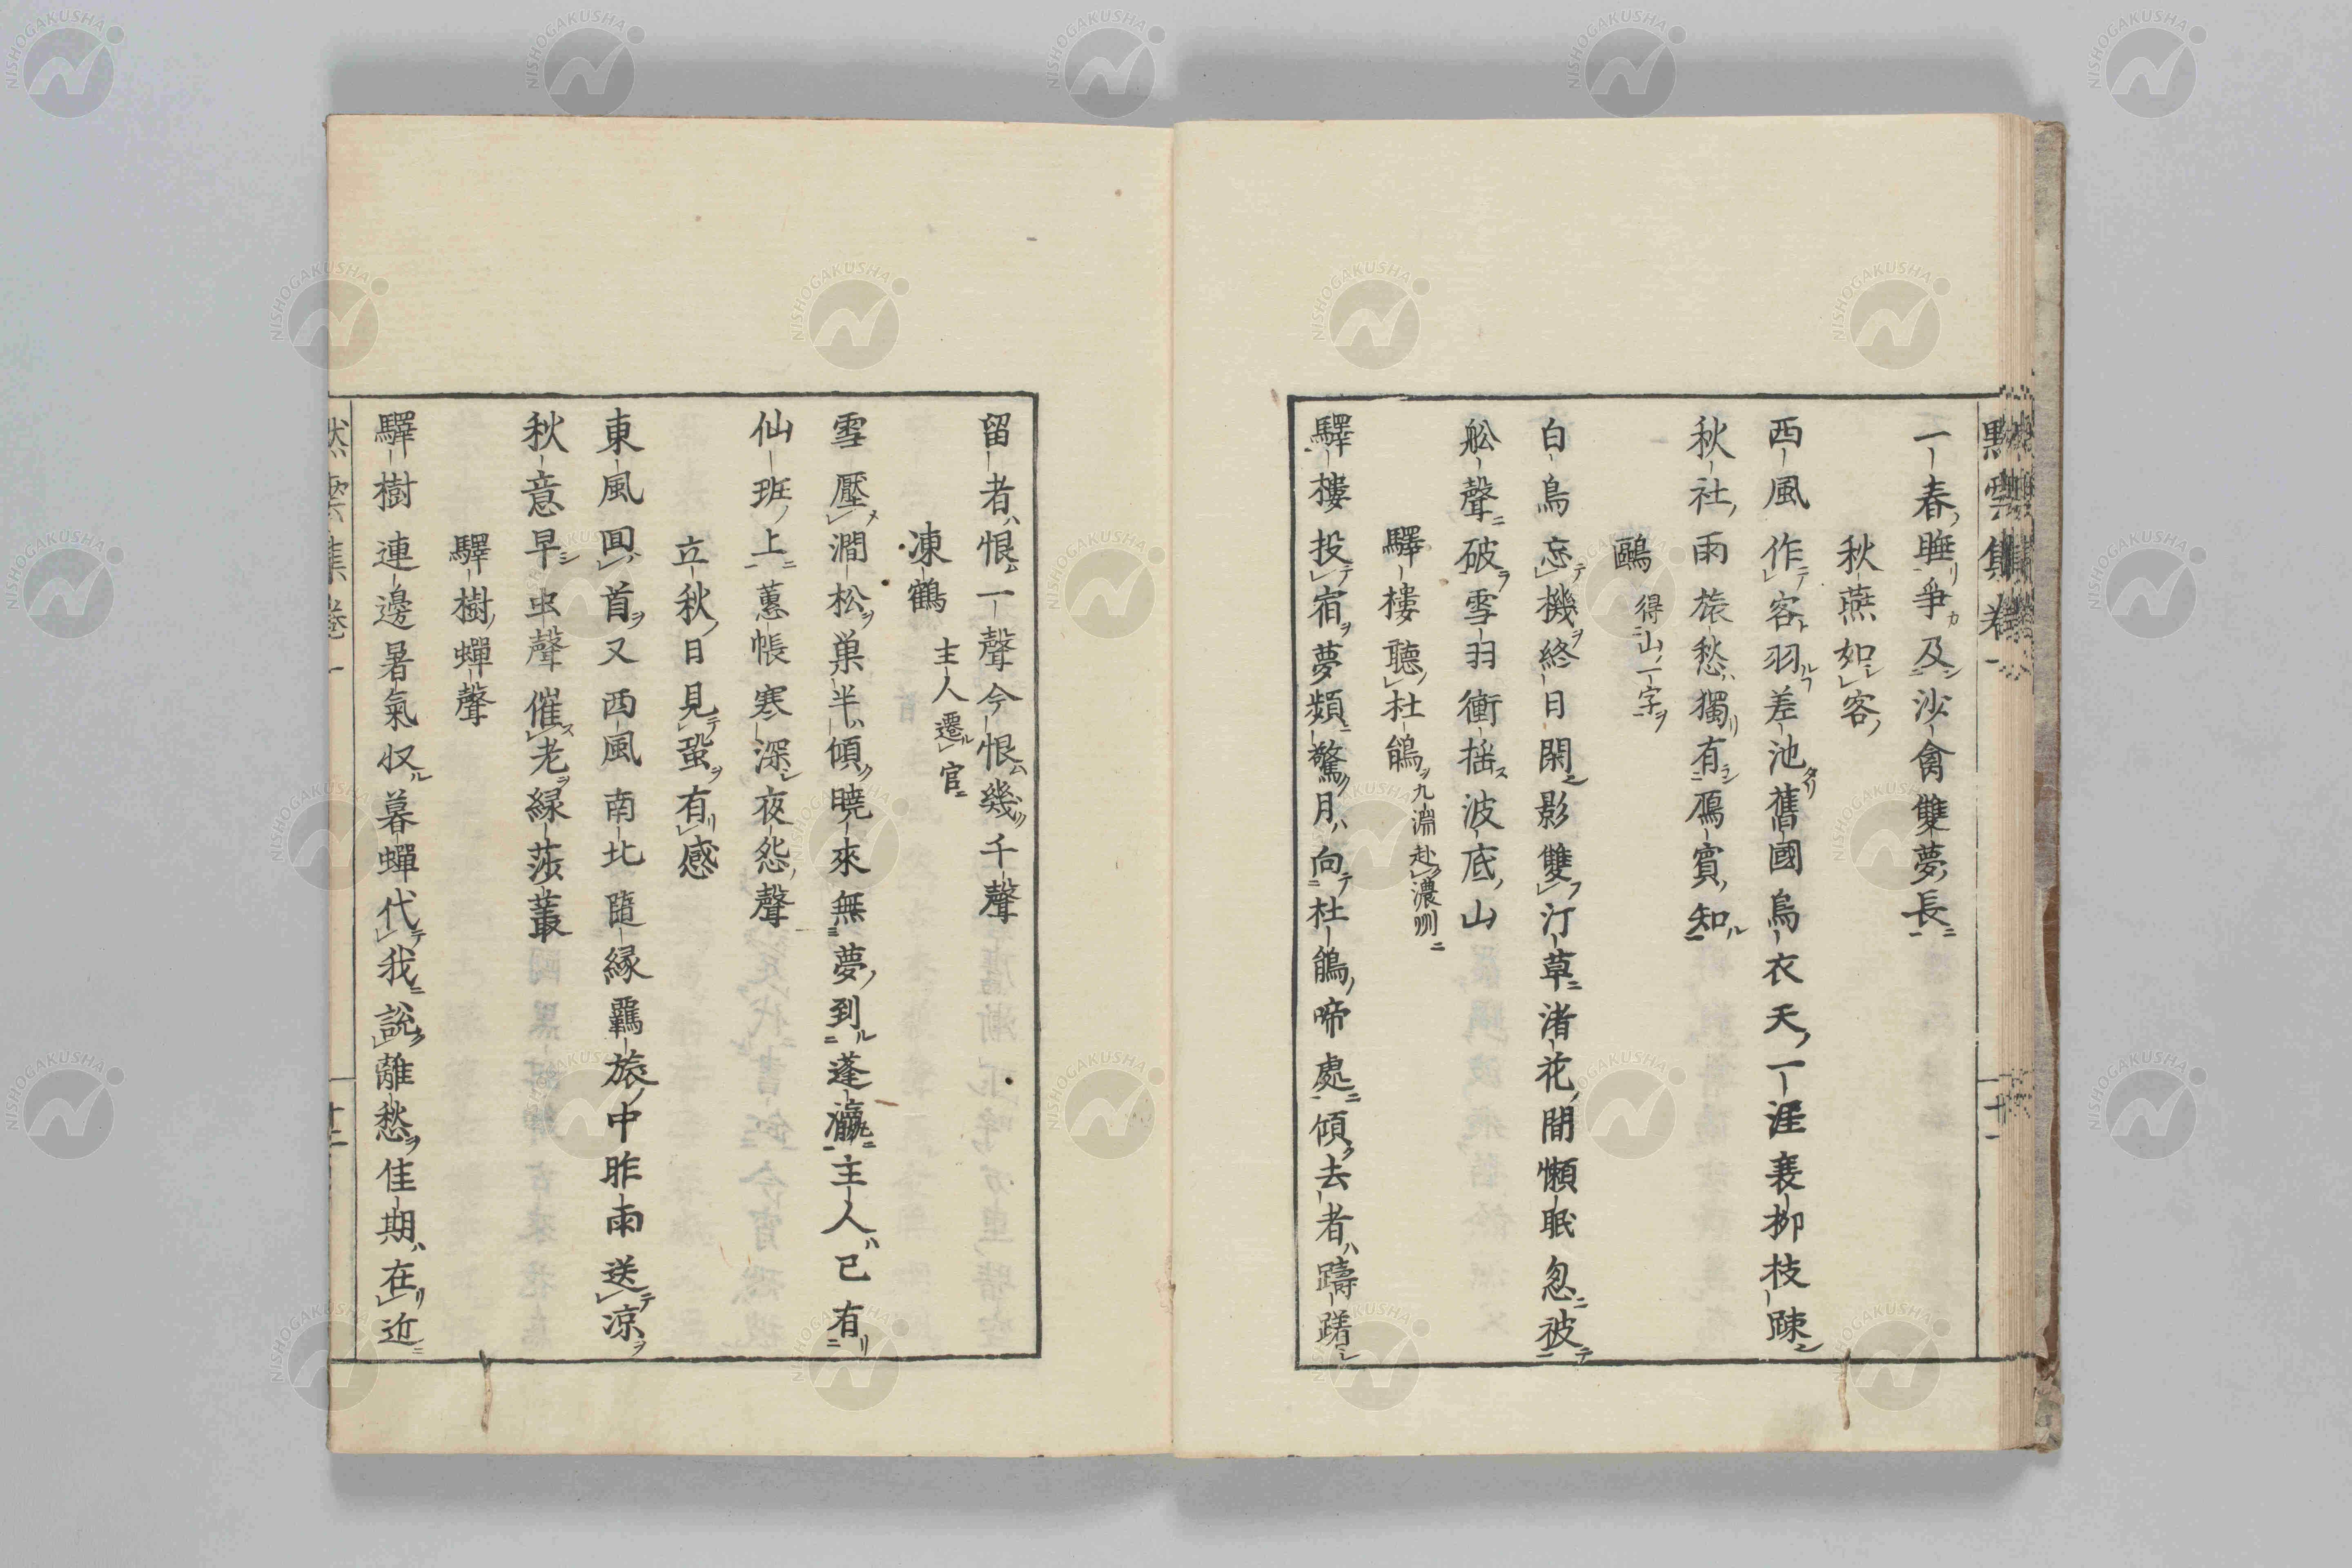 默雲集卷一
十一
一春睡爭及沙禽雙夢長
秋燕如客
西風作客羽差池舊國烏衣天一涯衰柳枝疎
秋社雨旅愁獨有鴈賓知
鷗 得山一字
白鳥忘機終日閑影雙汀草渚花間懶眠忽被
舩聲破雪羽衝揺波底山
驛樓聽杜鵑 九淵赴濃州
驛樓投宿夢頻驚月向杜鵑啼處傾去者躊躇
留者恨一聲今恨幾千聲
凍鶴 主人遷官
雪壓澗松巢半傾曉來無夢到蓬瀛主人已有
仙班上蕙帳寒深夜怨聲
立秋日見蛩有感
東風囬首又西風南北隨縁羈旅中昨雨送涼
秋意早虫聲催老緑莎叢
驛樹蟬聲
驛樹連邊暑氣収暮蟬代我說離愁佳期在近
默雲集卷一
十二
NISHOGAKUSHA